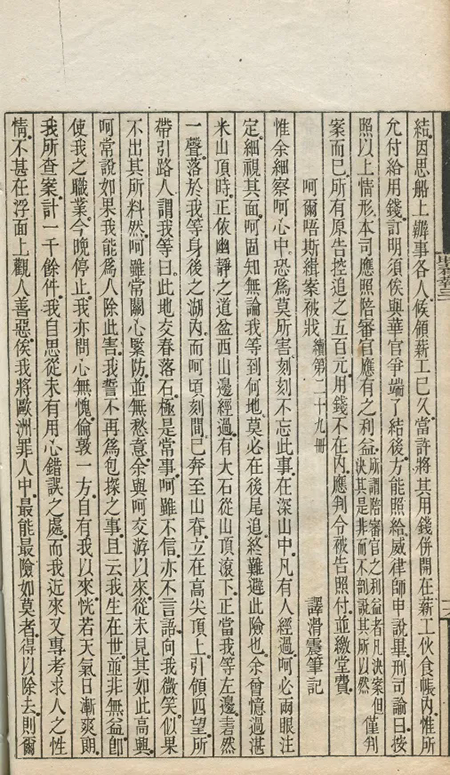 結因思船上辦事各人候領薪工已久當許將其用錢併開在薪工伙食帳內惟所
允付給用錢訂明須俟與華官爭端了結後方能照給威律師申說畢刑司諭曰按
照以上情形本司應照陪審官應有之利益所謂陪審官之利益者凡決案但決其是非而不剖說其所以然僅判
案而已所有原告控追之五百元用錢不在內應判令被告照付並繳堂費
呵爾唔斯緝案被戕 續第二十九冊 譯滑震筆記
惟余細察呵心中恐為莫所害刻刻不忘此事在深山中凡有人經過呵必兩眼注
定細視其面呵固知無論我等到何地莫必在後尾追終難避此險也余曾憶過湛
米山頂時正依幽靜之道盆西山邊經過有大石從山頂滾下正當我等左邊砉然
一聲落於我等身後之湖內而呵頃刻間已奔至山脊立在高尖頂上引領四望所
帶引路人謂我等曰此地交春落石極是常事呵雖不信亦不言語向我微笑似果
不出其所料然呵雖常關心緊防並無愁意余與呵交游以來從未見其如此高興
呵常說如果我能為人除此害我誓不再為包探之事且云我生在世並非無益卽
使我之職業今晚停止我亦問心無愧倫敦一方自有我以來恍若天氣日漸爽朗
我所查案計一千餘件我自思從未有用心錯誤之處而我近來又專考求人之性
情不甚在浮面上觀人善惡俟我將歐洲罪人中最能最險如莫者得以除去則爾